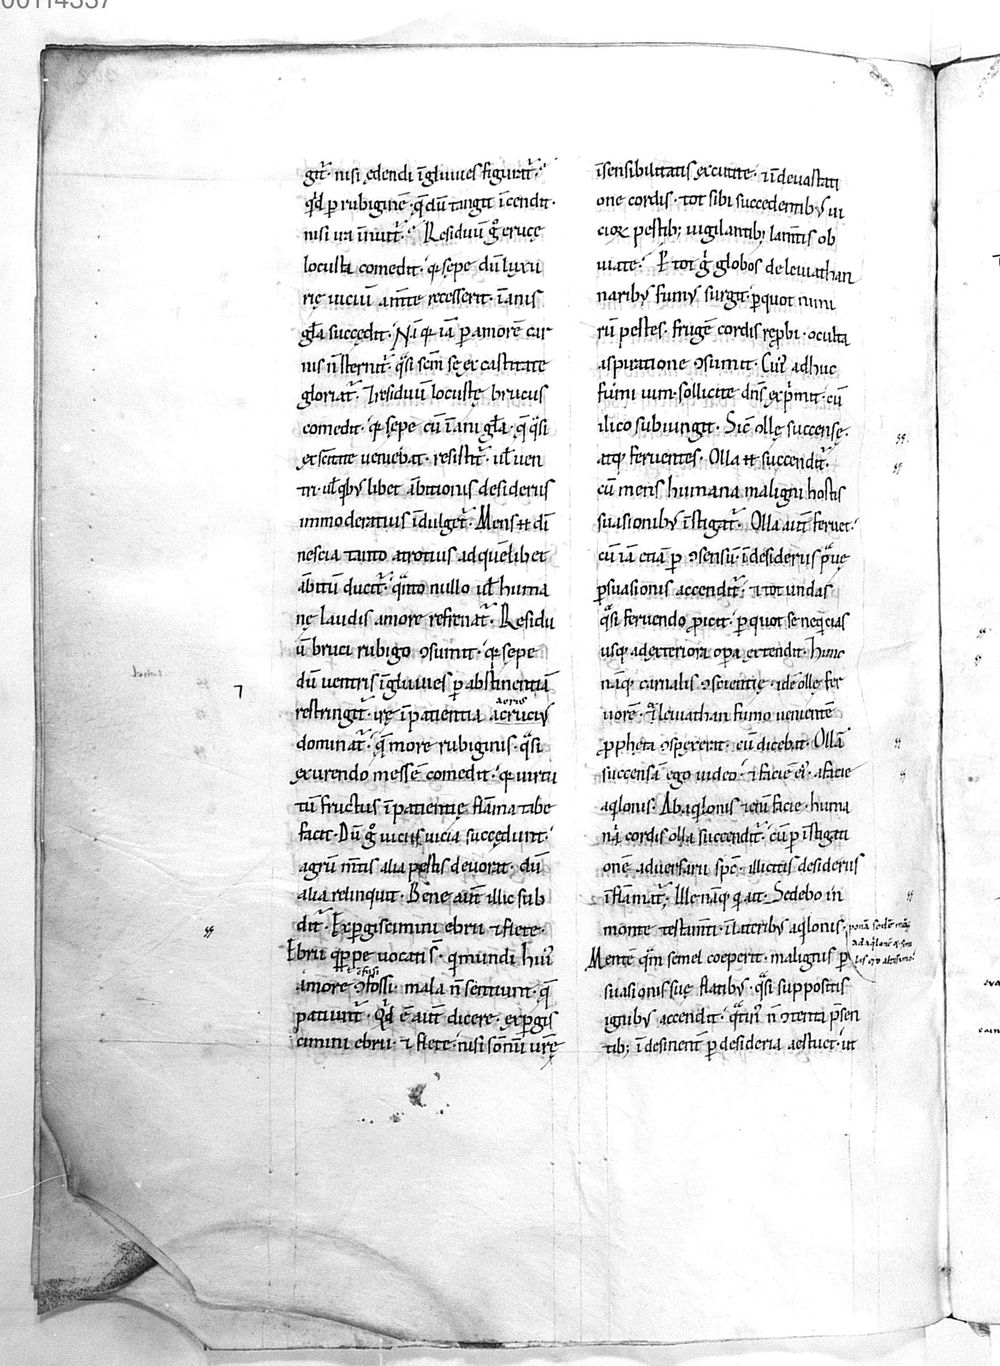 00114337
git̃· nisi edendi īgluuies figurat̃·
qđ p rubiginē· q̄ dū tangit īcendit·
nisi ira īnuit̃· Residuū g̊ erucę
locusta comedit· q sepe dū luxu
rię uiciū a mte recesserit· īanis
gła succedit· Nā q iā p amorē car
nis n̄ sternit̃· q̊si scm̄ se ex castitate
gloriat̃· 7 residuū locustę brucus
comedit· q sepe cū īani gła· q̄ q̊si
ex sc̄titate ueniebat· resistit̃· uł uen
tri· uł qbꝰ libet ābitionis desideriis
immoderatius īdulget̃· Mens ħ dī
nescia tanto atrotius ad quēlibet
ābitū ducit̃· q̊nto nullo uł huma
nę laudis amore refrenat̃· Residu
ū bruci rubigo ↄsumit· q sepe
dū uentris īgluuies p abstinentiā
restringit̃· irę īpatientia acrius
acruciꝰ
dominat̃· q̄ more rubiginis· q̊si
exurendo messē comedit· q uirtu
tū fructus īpatientię flāma tabe
facit· Dū g̊ uiciis uicia succedunt·
agrū m̄tis alia pestis deuorat· dū
alia relinquit· Bene aut̄ illic sub
dit̃· Expgiscimini ebrii 7 flete·
Ebrii qppe uocati s̄· q mundi huiꝰ
amore ↄfossi· mala n̄ sentiunt· q̄
ↄfusi
patiunt̃· Qđ ē aut̄ dicere· expgis
cimini ebrii· 7 flete· nisi somnū urę
īsensibilitatis excutite· 7 ī deuastati
one cordis· tot sibi succedentibꝰ ui
cioꝝ pestib; uigilantib; lam̄tis ob
uiate· Et tot g̊ globos de leuiathan
naribꝰ fumꝰ surgit· p quot nimi
rū pestes· frugē cordis repbi· occulta
aspiratione ↄsumit· Cuiꝰ adhuc
fumi uim sollicite dn̄s exp̊mit· cū
ilico subiungit· Sic̄ ollę succensę·
atq feruentes· Olla ħ succendit̃·
cū mens humana maligni hostis
suasionibꝰ īstigat̃· Olla aut̄ feruet·
cū iā etiā p ↄsensū· ī desideriis p̊uę
psuasionis accendit̃· 7 tot undas
q̊si feruendo picit· p quot se neqcias
usq ad exteriora opa extendit· Hunc
nāq carnalis ↄscientię· idē ollę fer
uorē· q̄ leuiathan fumo uenientē
ppheta ↄspexerat· cū dicebat· Ollā
succensā ego uideo· 7 faciē eiꝰ· a facie
aqlonis· Ab aqlonis etenī facie· huma
na cordis olla succendit̃· cū p īstigati
onē aduersarii spc̄· illicitis desideriis
īflamat̃· Ille nāq q ait· Sedebo in
monte testamti· ī lateribꝰ aqlonis·
ponā sedē meā
ad aqlonē
Mentē q̊m semel coeperit· malignis p
suasionis suę flatibꝰ· q̊si suppositis
ignibꝰ accendit· q̊tinꝰ n̄ ↄtenti p̄sen
tib; ī desinent̄ p desideria aestuet· ut